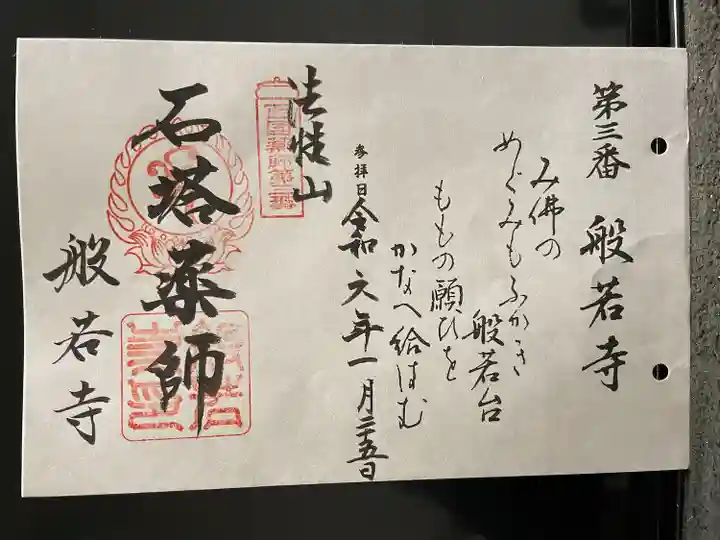 第三番 般若寺
み佛の
めぐみもふかき
般若台
ももの願ひを
かなへ給はむ
参拝日 令和六年一月二十五日
法性山
西国薬師第三番
石塔薬師
般若寺